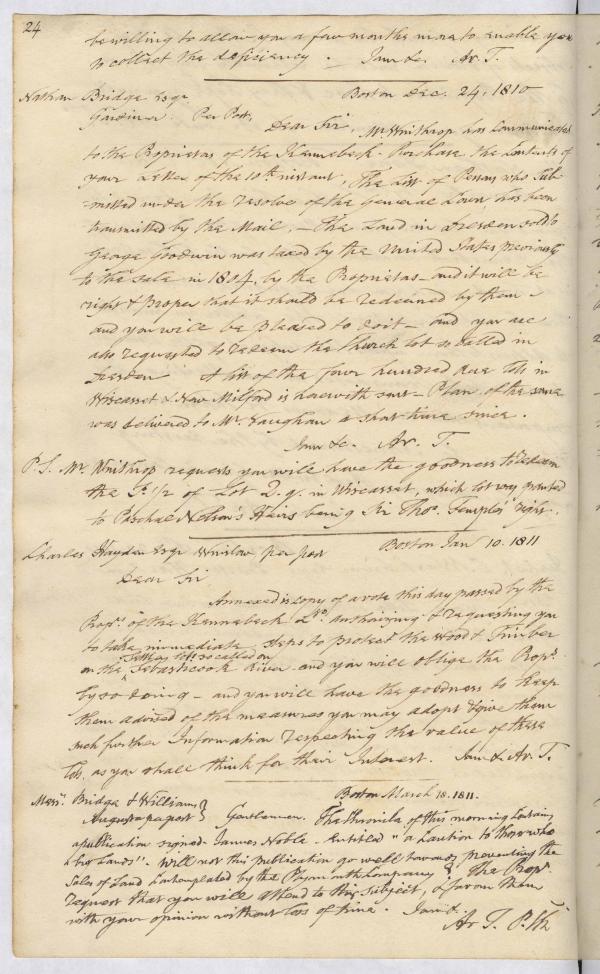 24
be willing to allow you a few months more to enable you
to collect the deficiency. I am &c. Ar. T.
Nathan Bridge Esqr Boston Dec. 24, 1810
Gardiner. Per Post,
Dear Sir, Mr. Winthrop has Communicated
to the Proprietors of the Kennebeck Purchase the Contents of
your Letter of the 10th instant, The List of Persons who Sub-
mitted under the resolve of the General Court has been
transmitted by the Mail. — The Land in Dresden sold to
George Goodwin was taxed by the United States previously
to the sale in 1804, by the Proprietors — and it will be
right & proper that it should be redeemed by them —
and you will be pleased to do it — and you are
also requested to redeem the Church lot so called in
Dresden A list of the four hundred acre lots in
Wiscasset & New Milford is herewith sent — Plan of the same
was delivered to Mr. Vaughan a short time since.
I am &c. Ar. T.
P.S. Mr. Winthrop requests you will have the goodness to redeem
the 1/2 of Lot Q. 9. in Wiscasset, which lot was granted
to Paschal Nelson's Heirs being Sir Thos. Temples right.
Charles Hayden Esqr Winslow per post Boston Jan 10. 1811
Dear Sir
Annexed is copy of a vote this day passed by the
Proprs. of the Kennebeck authorizing & requesting you
to take immediate steps to protect the Wood & Timber
lots so called on
on the Sebasticook River — and you will oblige the Propr.
by so doing — and you will have the goodness to keep
them advised of the measures you may adopt & give them
such further Information respecting the value of these
lots, as you shall think for their Interest. I am &c Ar. T.
Messrs. Bridge & Williams Boston March 18. 1811.
Augusta per post Gentlemen. The Chronicle of this morning Contains
a publication signed James Noble — entitled "a Caution to those who
buy Lands". Will not this publication go well towards preventing the
Sales of Land Contemplated by the Plymouth Company The Propr.
request that you will attend to this subject, & favor them
with your opinion without loss of time. I am &.
Ar T.